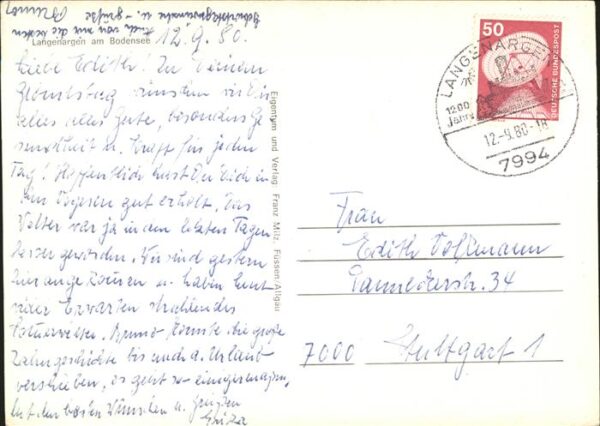 Auch von mir die besten
Geburtstagswünsche u. -grüße
Bruno
Langenargen am Bodensee
12.9.80.
Liebe Edith! Zu Deinem
Geburtstag wünschen wir Dir
alles alles Gute, besonders Ge-
sundheit u. Kraft für jeden
Tag! Hoffentlich hast Du Dich in
den Vogesen gut erholt. Das
Wetter war ja in den letzten Tagen
besser geworden. Wir sind gestern
hier angekommen u. haben heut
wider Erwarten strahlendes
Bruno konnte die große
Zahngeschichte bis nach d. Urlaub
verschieben, es geht so einigermaßen.
Mit den besten Wünschen u. Grüßen
Eigentum und Verlag Franz Milz, Füssen/Allgäu
50
DEUTSCHE BUNDESPOST
LANGENARGEN
1200
Jahre
12.-9.80.-18
7994
Frau
Edith Volkmann
34
7000 Stuttgart 1